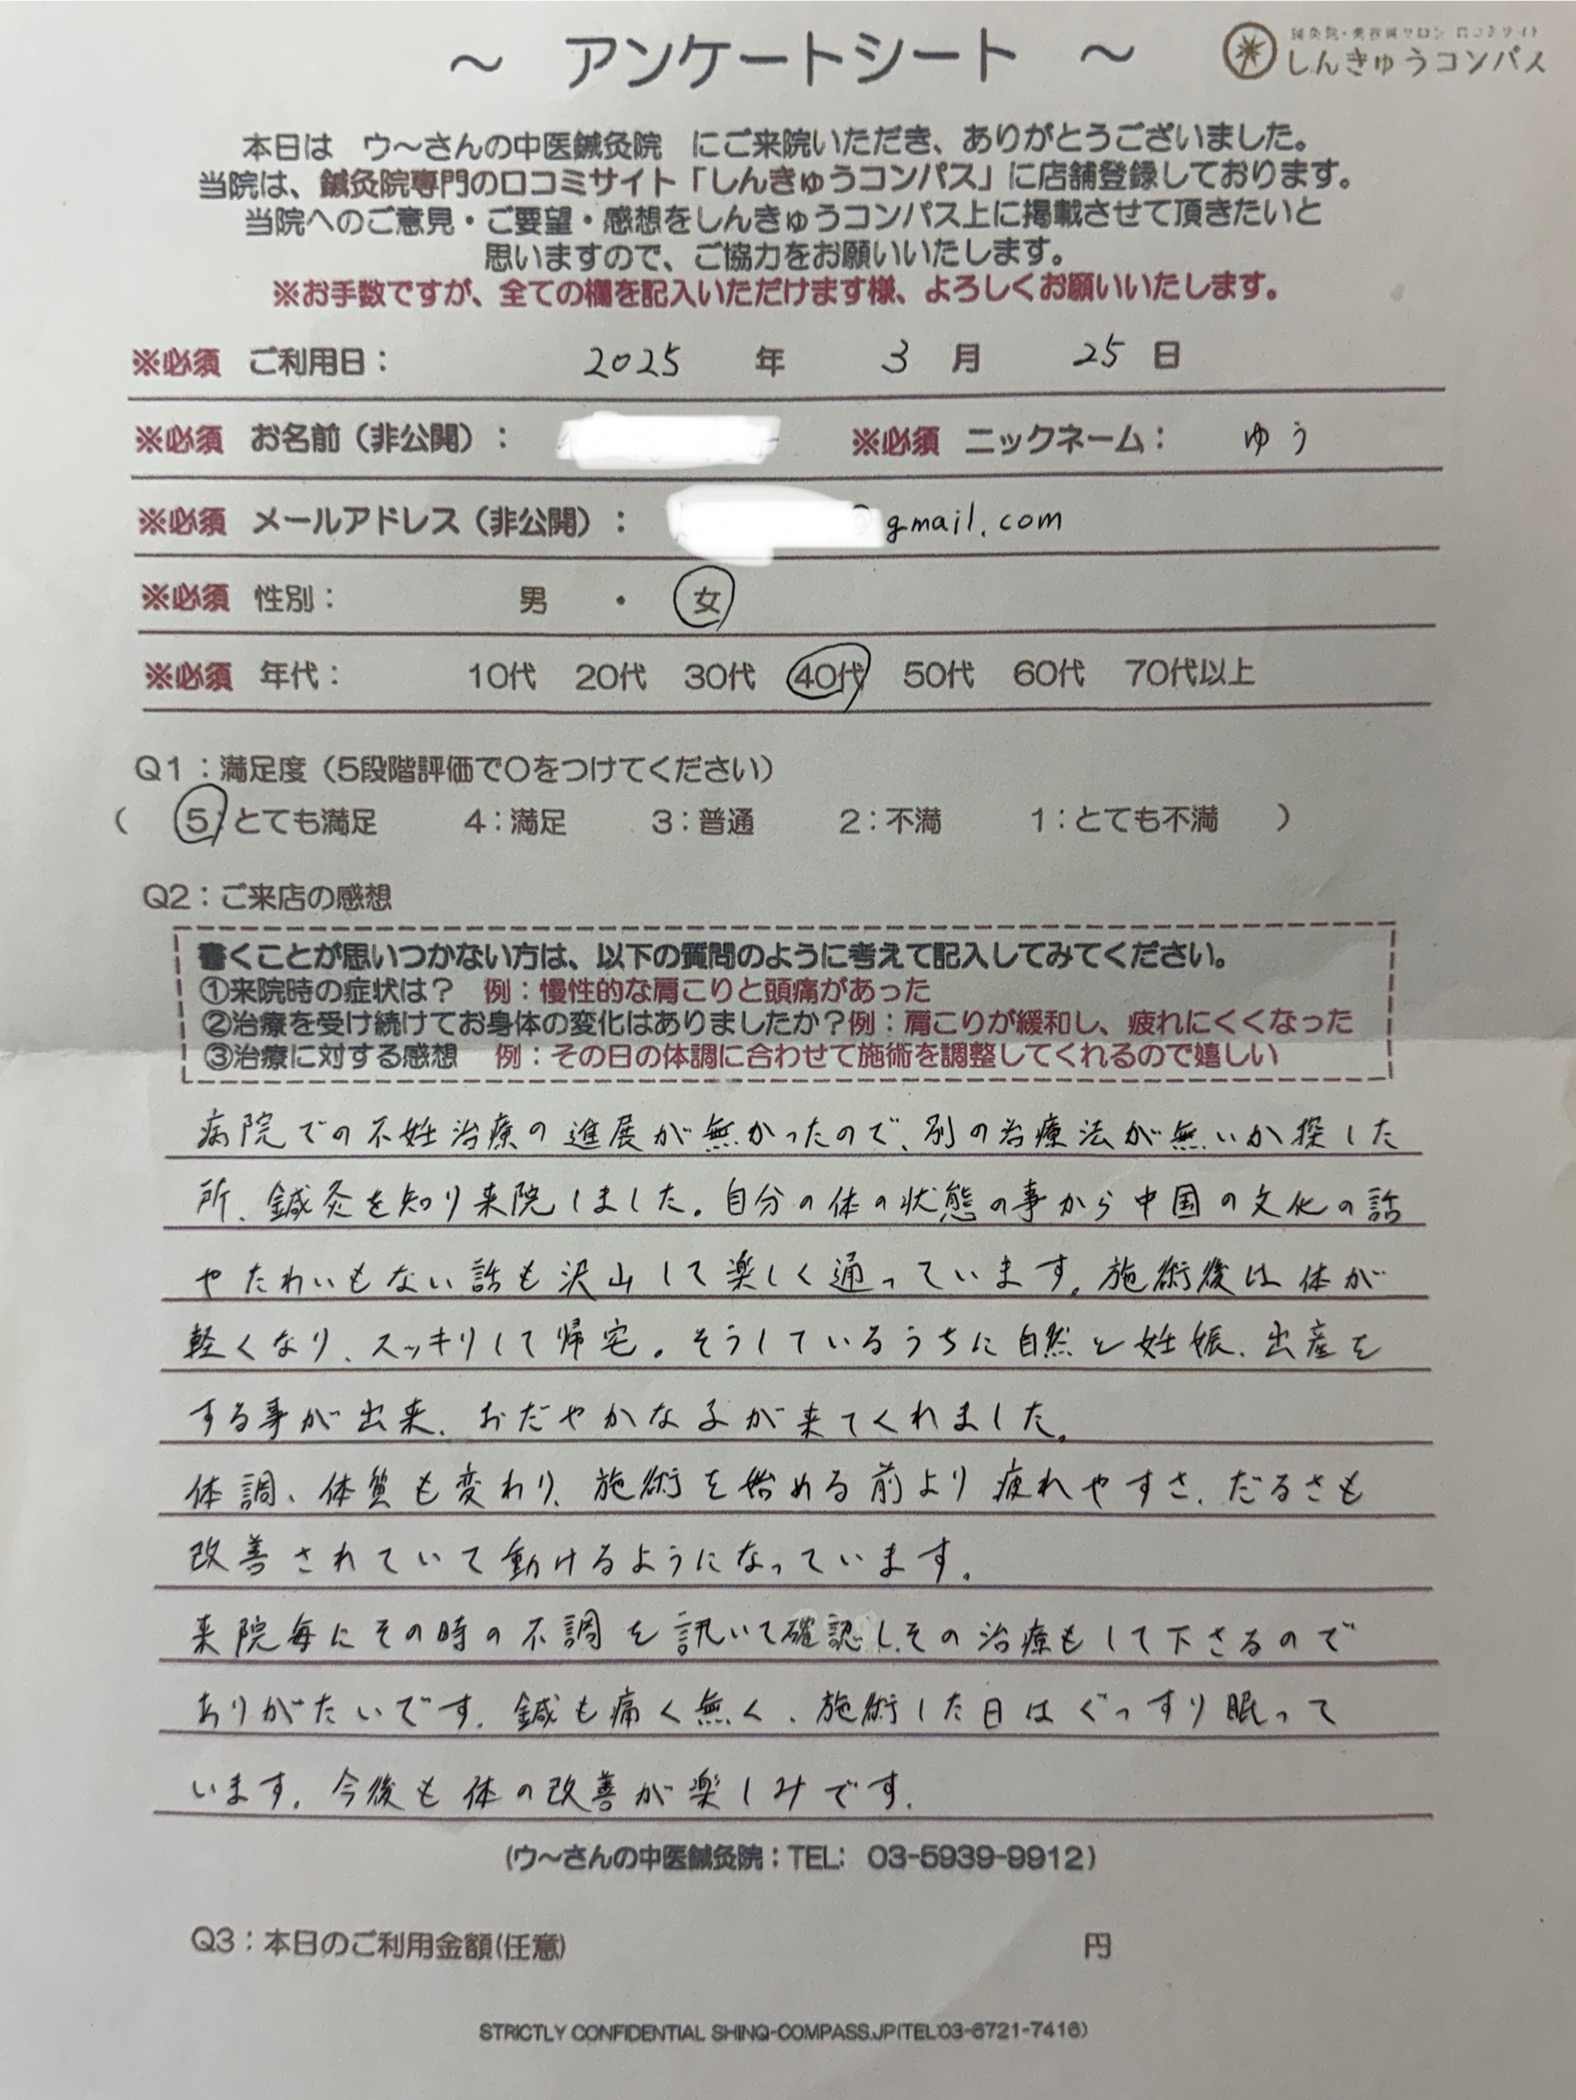 ～ アンケートシート ～
鍼灸院・美容鍼サロン 口コミサイト
しんきゅうコンパス
本日は ウ～さんの中医鍼灸院 にご来院いただき、ありがとうございました。
当院は、鍼灸院専門の口コミサイト「しんきゅうコンパス」に店舗登録しております。
当院へのご意見・ご要望・感想をしんきゅうコンパス上に掲載させて頂きたいと
思いますので、ご協力をお願いいたします。
※お手数ですが、全ての欄を記入いただけます様、よろしくお願いいたします。
※必須 ご利用日： 2025 年 3 月 25 日
※必須 お名前（非公開）： ※必須 ニックネーム： ゆう
※必須 メールアドレス（非公開）： @gmail.com
※必須 性別： 男 ・ 女
※必須 年代： 10代 20代 30代 40代 50代 60代 70代以上
Q1：満足度（5段階評価で〇をつけてください）
（ 5：とても満足 4：満足 3：普通 2：不満 1：とても不満 ）
Q2：ご来店の感想
書くことが思いつかない方は、以下の質問のように考えて記入してみてください。
①来院時の症状は？ 例：慢性的な肩こりと頭痛があった
②治療を受け続けてお身体の変化はありましたか？例：肩こりが緩和し、疲れにくくなった
③治療に対する感想 例：その日の体調に合わせて施術を調整してくれるので嬉しい
病院での不妊治療の進展が無かったので、別の治療法が無いか探した
所、鍼灸を知り来院しました。自分の体の状態の事から中国の文化の話
やたわいもない話も沢山して楽しく通っています。施術後は体が
軽くなり、スッキリして帰宅。そうしているうちに自然と妊娠、出産を
する事が出来、おだやかな子が来てくれました。
体調、体質も変わり、施術を始める前より疲れやすさ、だるさも
改善されていて動けるようになっています。
来院毎にその時の不調を訊いて確認し、その治療もして下さるので
ありがたいです。鍼も痛く無く、施術した日はぐっすり眠って
います。今後も体の改善が楽しみです。
（ウ～さんの中医鍼灸院：TEL: 03-5939-9912）
Q3：本日のご利用金額(任意) 円
STRICTLY CONFIDENTIAL SHINQ-COMPASS.JP(TEL:03-6721-7416)